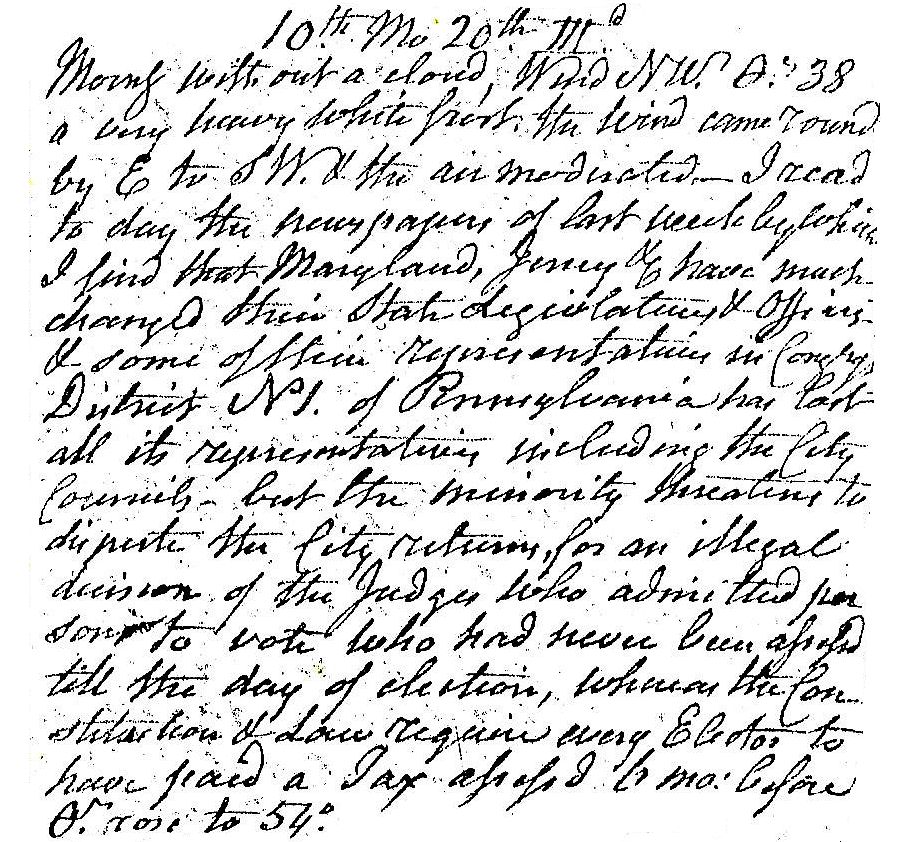 10th Mo 20th III.d
Morng without a cloud, Wind NW. Ɵ.r 38
a very heavy white frost. the wind came round
by E to SW. & the air moderated.— I read
to day the newspapers of last week by which
I find that Maryland, Jersey &c have much
changed their State Legislatures & Officers
& some of their representatives in Congress,
District No 1. of Pennsylvania has lost
all its representatives including the City
Councils - but the minority threatens to
dispute the City returns, for an illegal
decision of the Judges who admitted per
sons to vote who had never been assessed
till the day of election, whereas the Con-
stitution & Law require every Elector to
have paid a Tax assessed 6 mo: before
Ɵ.r rose to 54°.